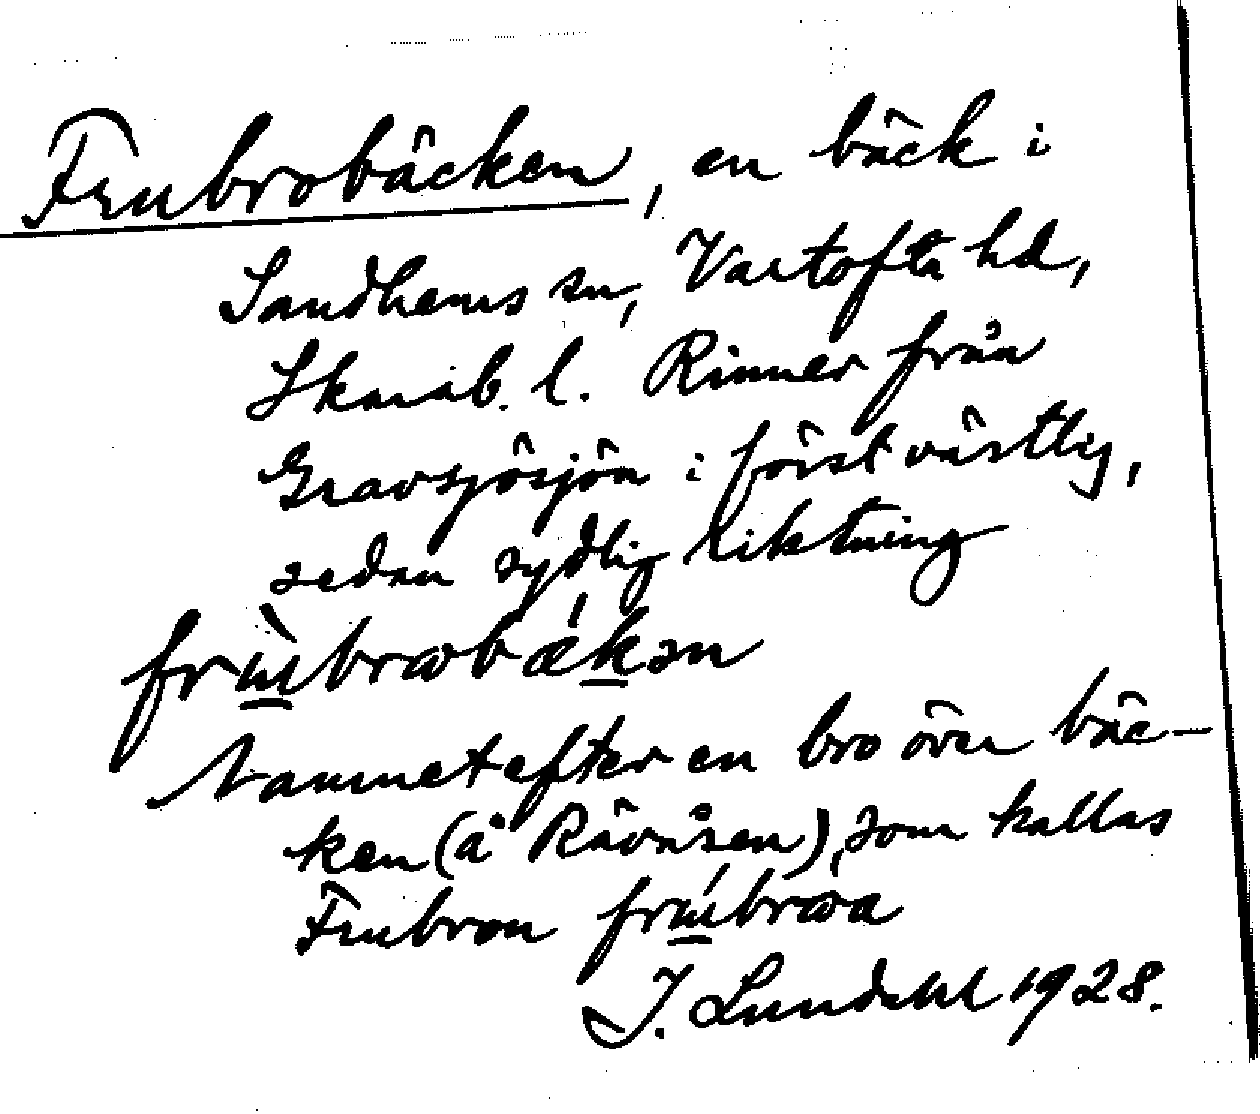 Frubrobäcken, en bäck i
Sandhems sn, Vartofta hd,
Skarab. l. Rinner från
Gravsjösjön i först västlig,
sedan sydlig riktning
Namnet efter en bro över bäc-
ken (å Rävåsen), som kallas
Frubron
J. Lundahl 1928.